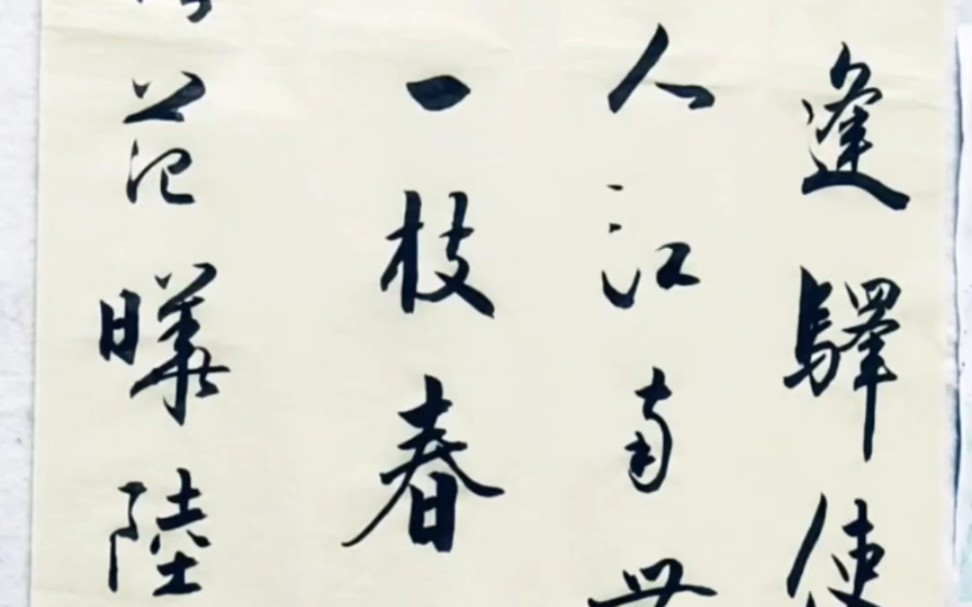 逢驛使
人江南無
一枝春
范曄陸